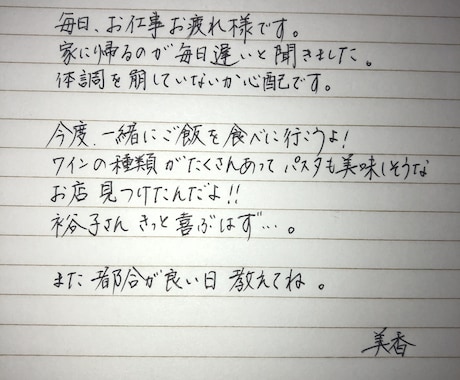 毎日、お仕事お疲れ様です。
家に帰るのが毎日遅いと聞きました。
体調を崩していないか心配です。
今度、一緒にご飯を食べに行こうよ！
ワインの種類がたくさんあってパスタも美味しそうな
お店見つけたんだよ！！
裕子さんきっと喜ぶはず…。
また都合が良い日教えてね。
美香